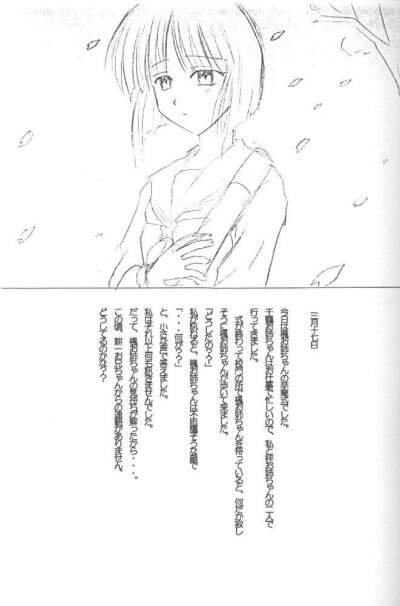 三月十七日
今日は楓お姉ちゃんの卒業式でした。
千鶴お姉ちゃんはお仕事で忙しいので、私と梓お姉ちゃんの二人で
行ってきました。
式が終わって校門の所で楓お姉ちゃんを待っていると、何だか寂し
そうに楓お姉ちゃんが歩いて来ました。
「どうしたの？」
私が訊ねると、楓お姉ちゃんは不思議そうな顔で
「・・・何が？」
と、小さな声で答えました。
私はそれ以上何も訊きませんでした。
だって、楓お姉ちゃんの気持ちが解ったから・・・。
この頃、耕一お兄ちゃんからの連絡がありません。
どうしてるのかな？